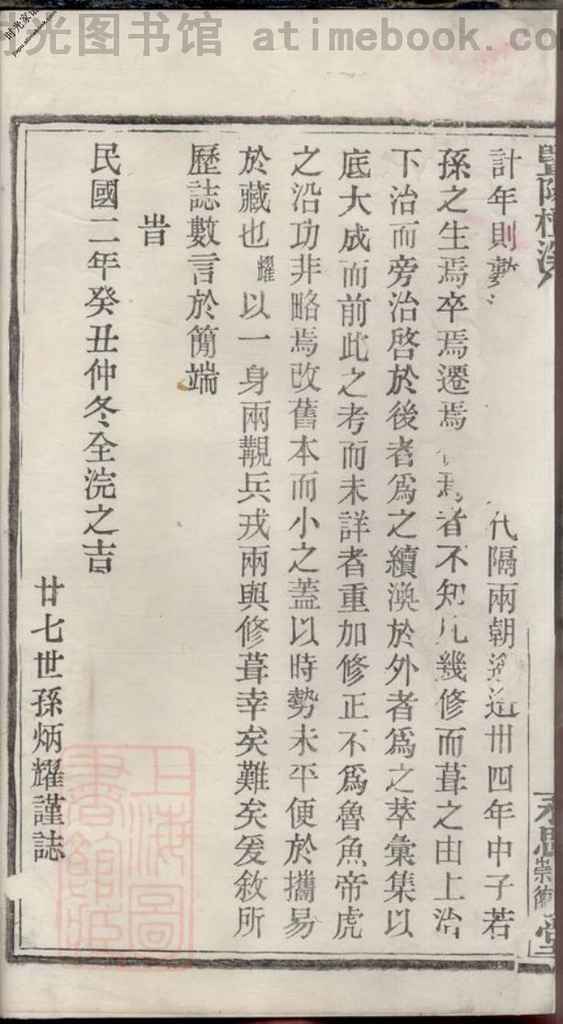 时光图书馆 atimebook.com
計年則數 代隔兩朝遙遙卅四年中子若
孫之生焉卒焉遷焉 焉者不知凡幾修而葺之由上治
下治而旁治啓於後者爲之續渙於外者爲之萃彙集以
底大成而前此之考而未詳者重加修正不爲魯魚帝虎
之沿功非略焉改舊本而小之蓋以時勢未平便於攜易
於藏也耀以一身兩覯兵戎兩與修葺幸矣難矣爰敘所
歷誌數言於簡端
旹
民國二年癸丑仲冬全浣之吉
廿七世孫炳耀謹誌
永思堂
上海圖書館